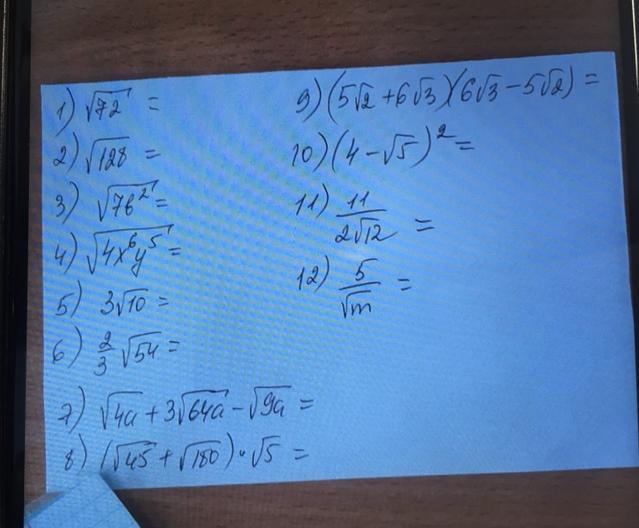 1) √72 =
2) √128 =
3) √7b² =
4) √4x⁶y⁵ =
5) 3√10 =
6) 2/3 √54 =
7) √4a + 3√64a - √9a =
8) (√45 + √180) • √5 =
9) (5√2 + 6√3)(6√3 - 5√2) =
10) (4 - √5)² =
11) 11/2√12 =
12) 5/√m =